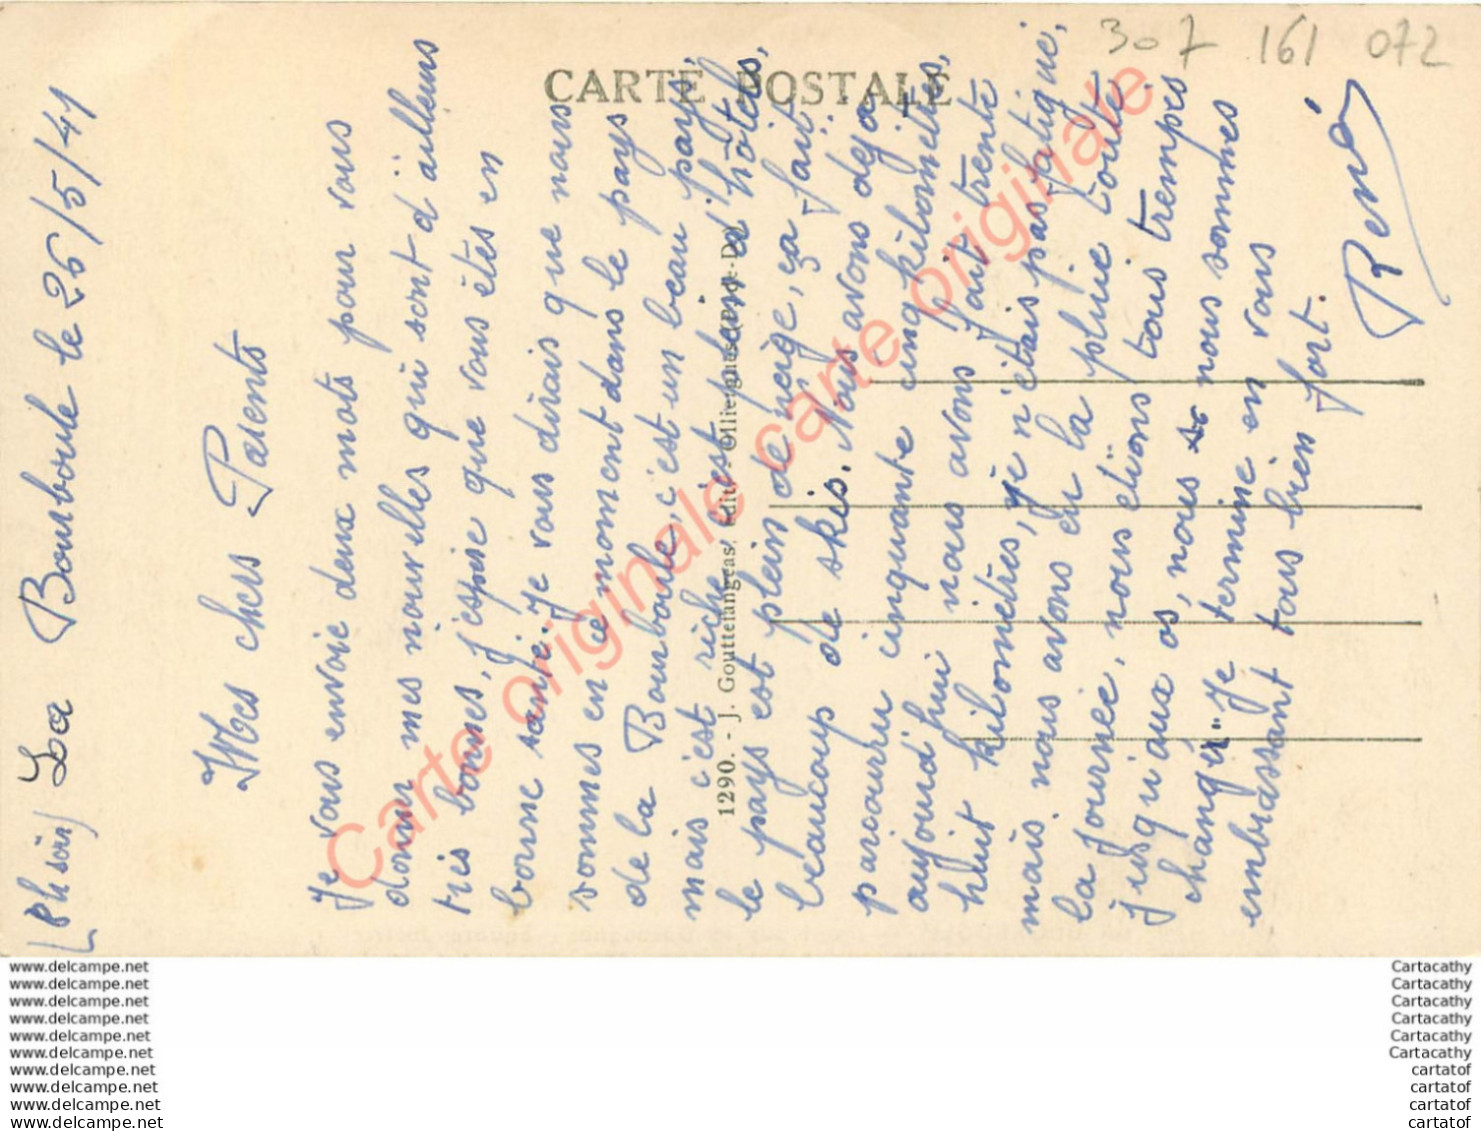 307 161 072
CARTE POSTALE
1290. - J. Gouttefangeas, édit. - Olliergues (P.-de-D.)
La Bourboule le 26/5/41
Mes chers Parents
Je vous envoie deux mots pour vous
donner mes nouvelles qui sont d'ailleurs
très bonnes, j'espère que vous êtes en
bonne santé. Je vous dirais que nous
sommes en ce moment dans le pays
de la Bourboule, c'est un beau pays,
mais c'est riche c'est plein d'hôtels,
le pays est plein de neige, ça fait
beaucoup de skis. Nous avons déjà
parcouru cinquante cinq kilomètres,
aujourd'hui nous avons fait trente
huit kilomètres, je n'étais pas fatigué,
mais nous avons eu la pluie toute
la journée, nous étions tous trempés
jusqu'aux os, nous nous sommes
changer" Je termine en vous
embrassant tous bien fort.
René
Carte originale carte originale
www.delcampe.net
www.delcampe.net
www.delcampe.net
www.delcampe.net
www.delcampe.net
www.delcampe.net
www.delcampe.net
www.delcampe.net
www.delcampe.net
www.delcampe.net
Cartacathy
Cartacathy
Cartacathy
Cartacathy
Cartacathy
Cartacathy
cartatof
cartatof
cartatof
cartatof